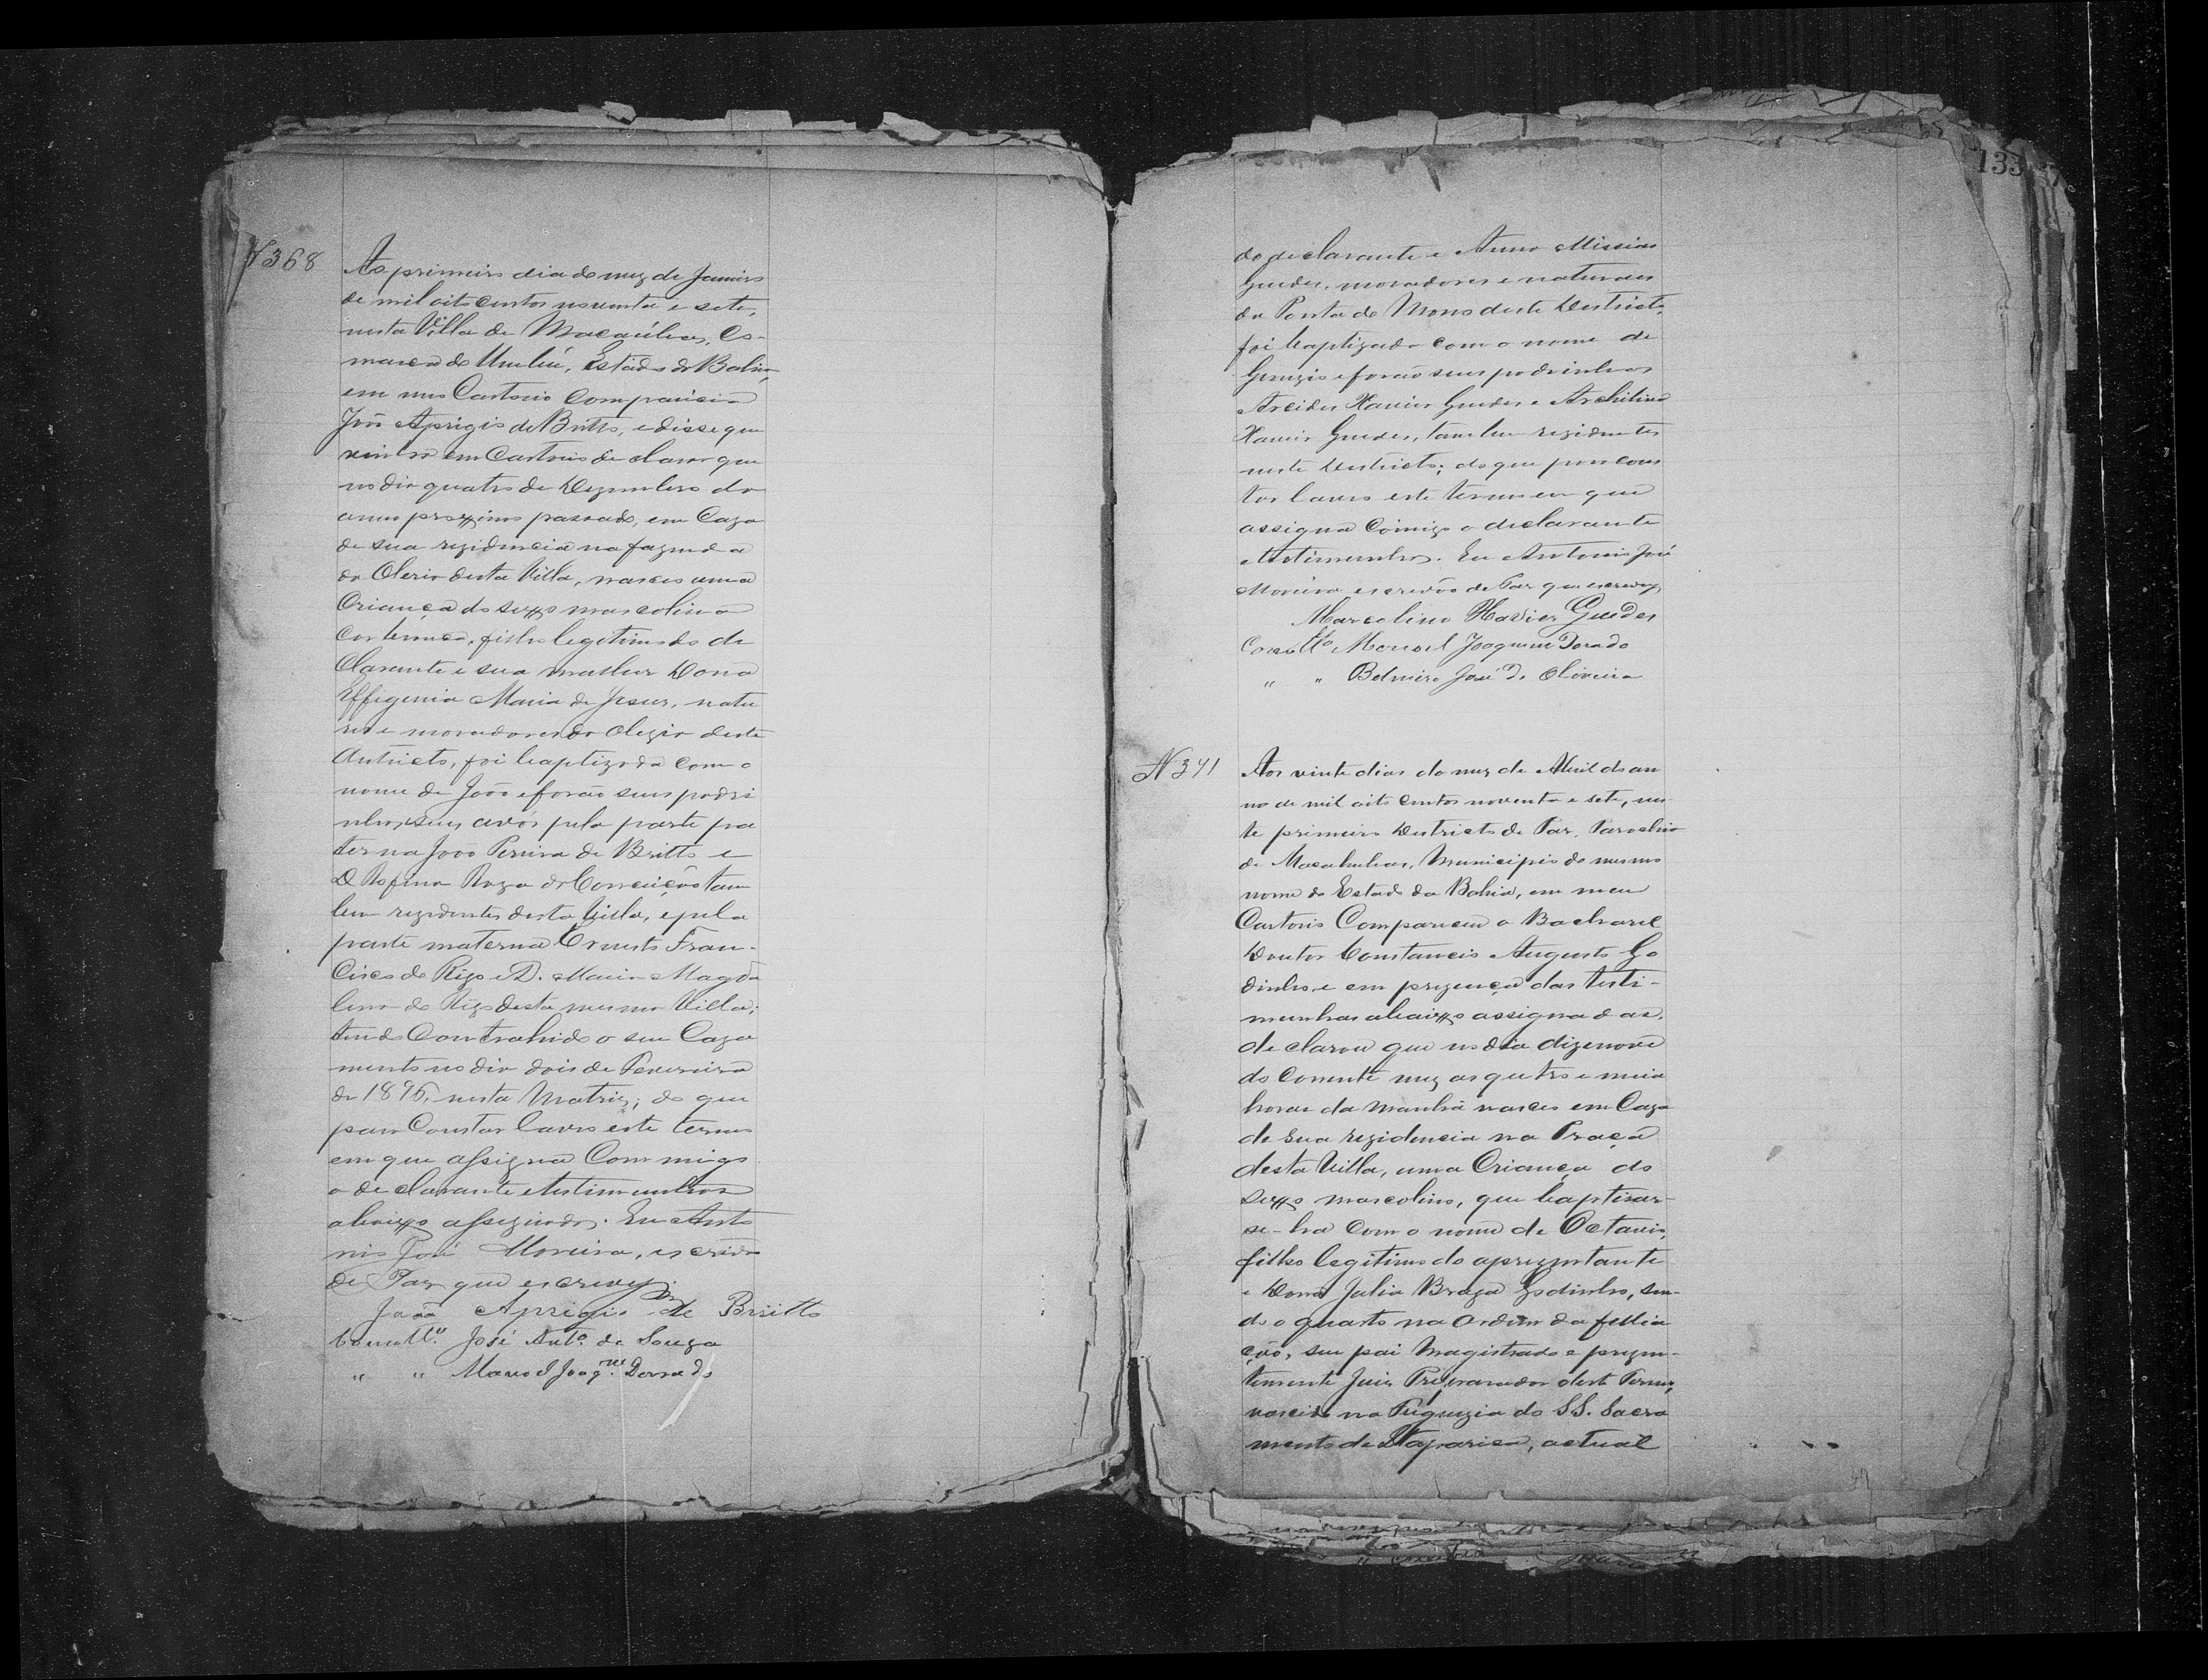 N 368
Ao primeiro dia do mez de Janeiro
de mil oito centos noventa e sete,
nesta Villa de Macaúbas, Co-
marca de Urubú, Estado da Bahia,
em meo Cartorio compareceu
João Aprigio de Britto, e disse que
vinha em Cartorio declarar que
no dia quatro de Dezembro do
anno proximo passado, em Caza
de sua rezidencia na fazenda
da Oleria desta Villa, nasceo uma
Criança do sexo masculino
Cor branca, filho legitimo do de
clarante e sua mulher Dona
Effigenia Maria de Jesus, natu
res e moradores da Oleria deste
districto, foi baptizada com o
nome de João e forão seus padri
nhos, seus avós pela parte pa
terna João Pereira de Britto e
D Rofina Roza da Conceição tam
bem rezidentes desta Villa, e pela
parte materna Ernesto Fran-
cisco de Rego e D. Maria Magda
lena do Rego desta mesma Villa;
tendo Contrahido o seu Caza
mento no dia dois de Fevereiro
de 1896, nesta Matriz; do que
para Constar lavro este termo
em que assigna Commigo
o declarante e testimunhas
abaixo assignados. Eu Anto
nio José Moreira, escrivão
de Paz que escrevy.
João Aprigio de Britto
Como tta. José Anto. de Souza
" " Manoel Joaqm. Dorado
133
do declarante e Anna Missias
Guedes, moradores e naturaes
da Ponta do Morro deste Destricto,
foi baptizada com o nome de
e forão seus padrinhos
Arcides Xavier Guedes e Archilina
Xavier Guedes, tambem rezidentes
neste Destricto; do que para cons
tar lavro este termo em que
assigna Comigo o declarante
e testimunhas. Eu Antonio José
Moreira escrivão de Paz que escrevy
Marcolino Xavier Guedes
Como tta Manoel Joaquim Dorado
" " Belmiro José de Oliveira
N 371
Aos vinte dias do mez de Abril do an
no de mil oito centos noventa e sete, nes
te primeiro Destricto de Paz, Parochia
de Macahubas, Municipio do mesmo
nome do Estado da Bahia, em meu
Cartorio Compareceu o Bacharel
Doutor Constancio Augusto Go
dinho, e em prezença das testi-
munhas abaixo assignadas,
declarou que no dia dizenove
do Corrente mez as quatro e meia
horas da manhã nasceo em Caza
de sua rezidencia na Praça
desta Villa, uma Criança do
sexo masculino, que baptisar-
se-ha Com o nome de Octavio,
filho legitimo do aprezentante
e Dona Julia Braga Godinho, sen-
do o quarto na Ordem da fillia
ção, seu pai Magistrado e prezen-
temente Juiz Preparador deste Termo,
nascido na Freguezia do S.S. Sacra
mento de Itaparica, actual